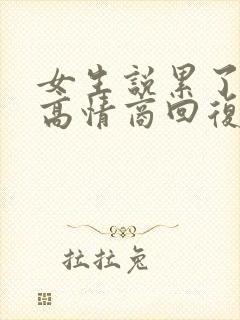 女生說累了
高情商回復
拉拉兔